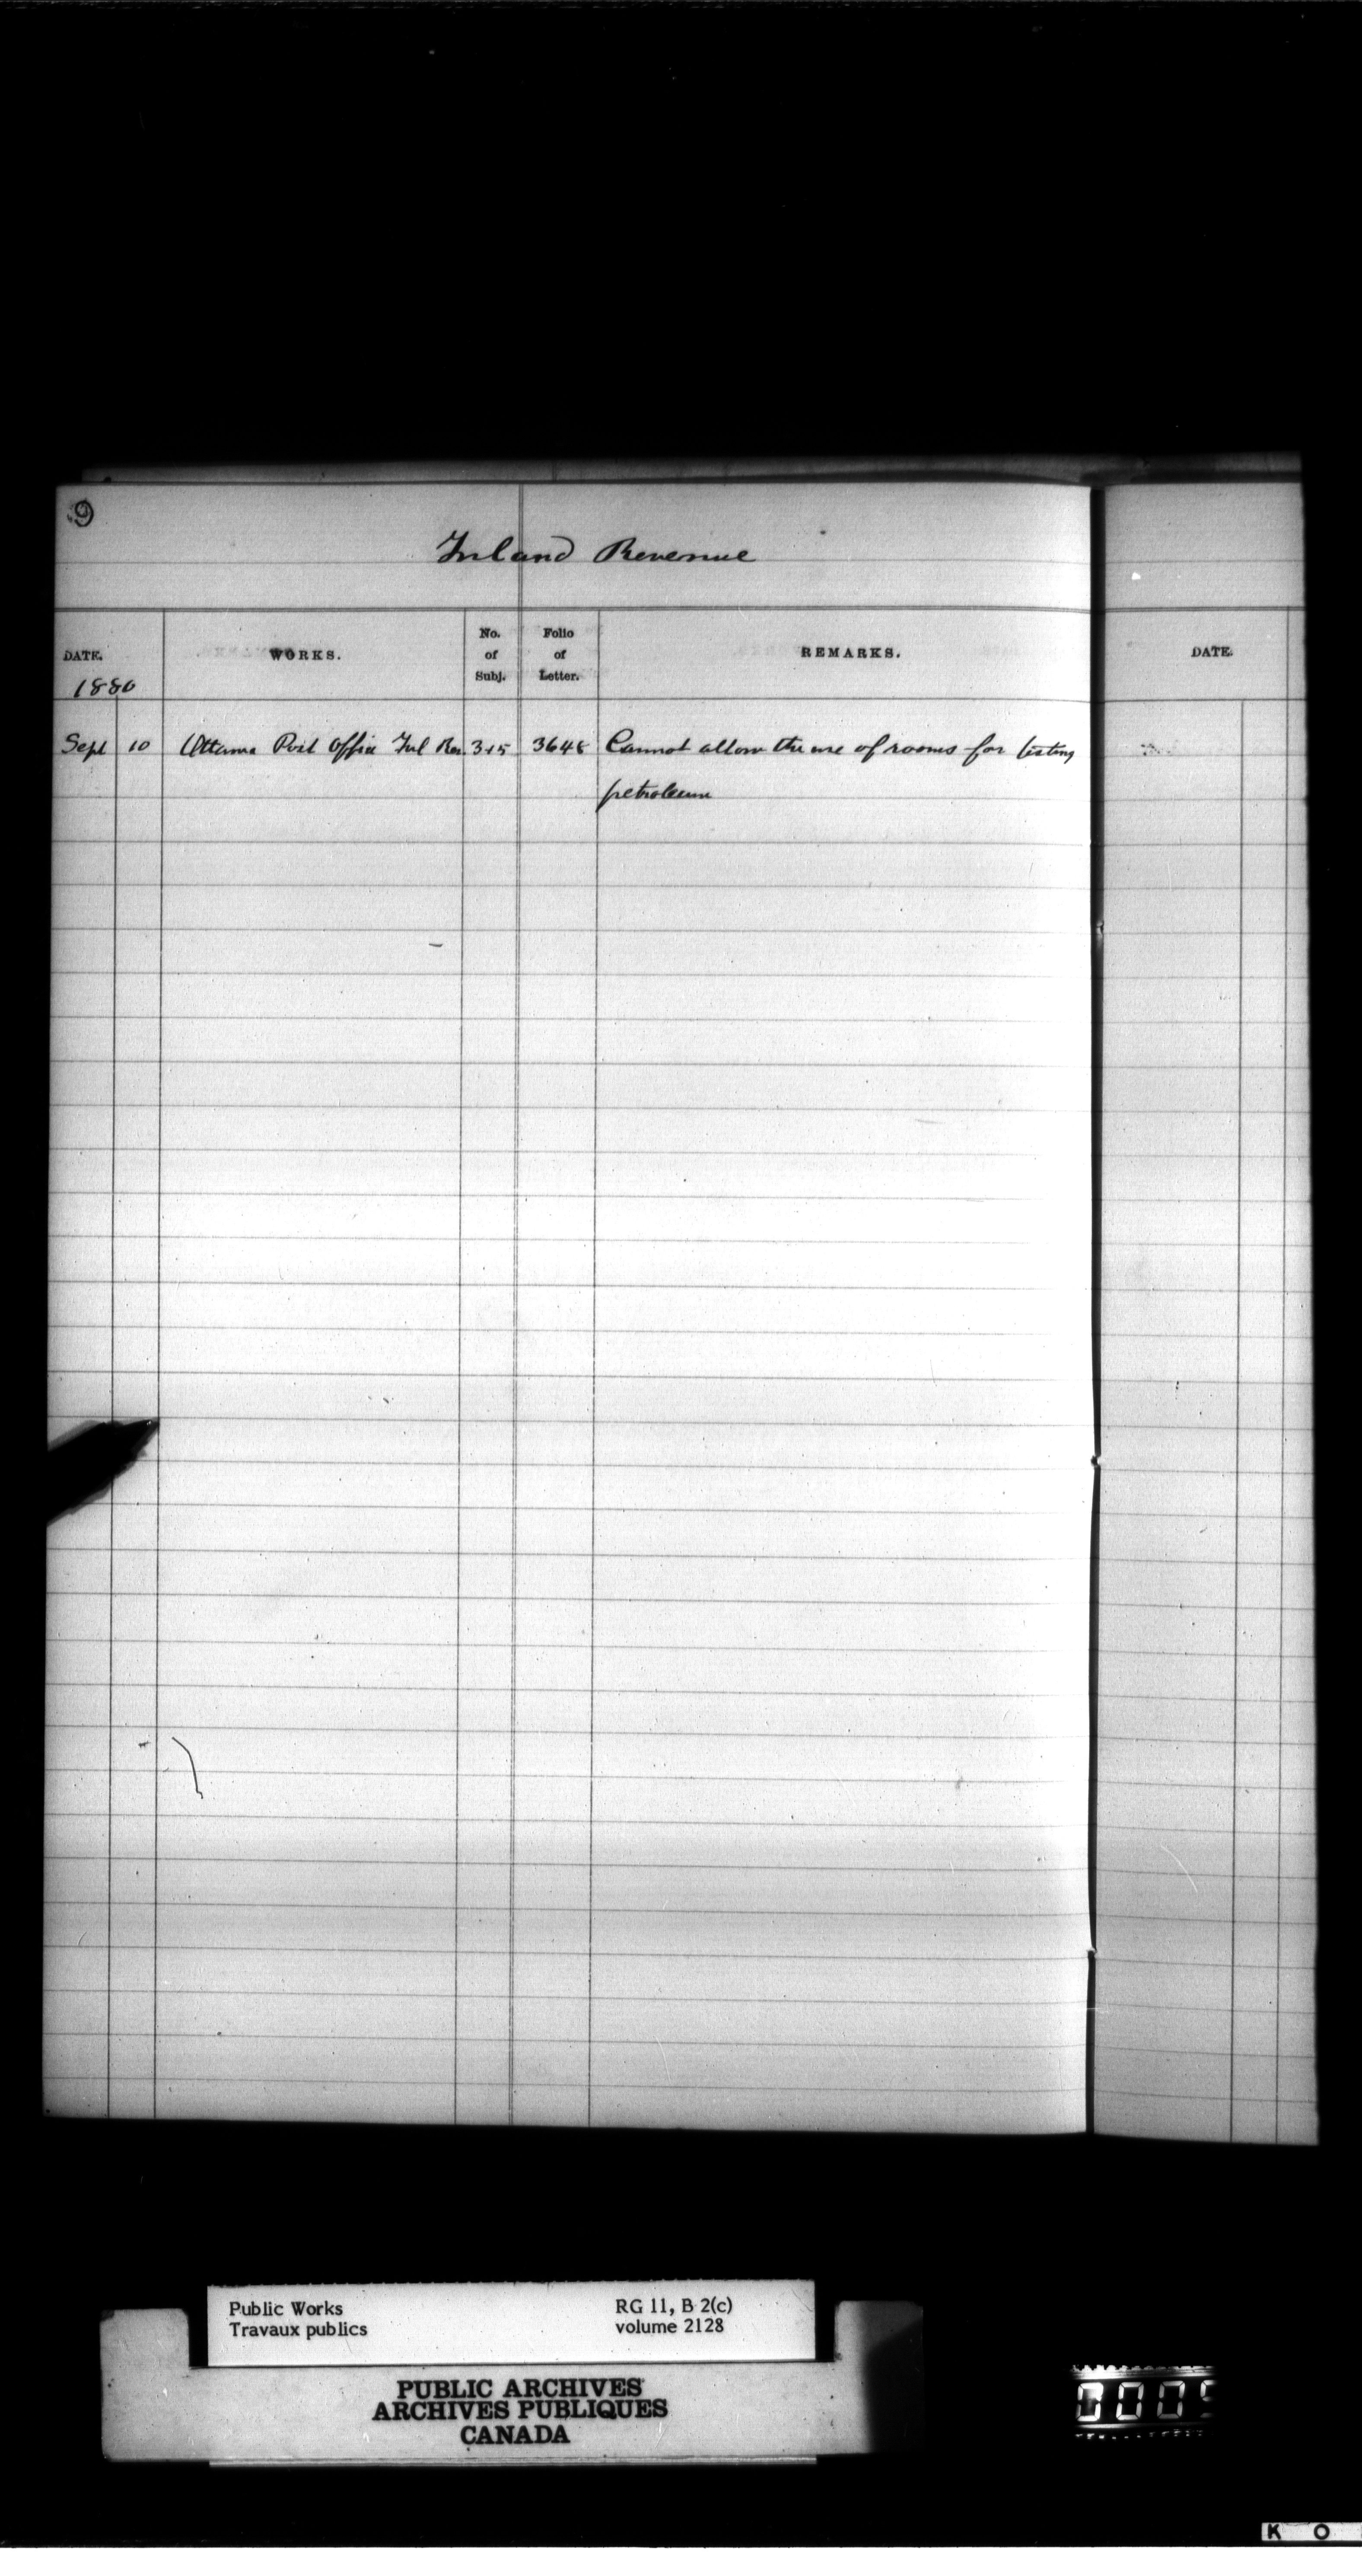 9
Inland Revenue
DATE. WORKS. No. of Subj. Folio of Letter. REMARKS. DATE.
1880
Sept 10 Ottawa Post Office Inl Rev 315 3648 Cannot allow the use of rooms for testing
petroleum
Public Works RG 11, B 2(c)
Travaux publics volume 2128
PUBLIC ARCHIVES
ARCHIVES PUBLIQUES
CANADA
0005
K O